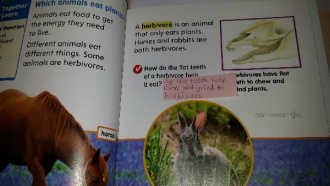 Together
Learn
Which animals eat plants
Animals eat food to get
the energy they need
to live.
Different animals eat
different things. Some
animals are herbivores.
horse
A herbivore is an animal
that only eats plants.
Horses and rabbits are
both herbivores.
How do the flat teeth
of a herbivore help
it eat?
herbivores have flat
teeth to chew and
grind plants.